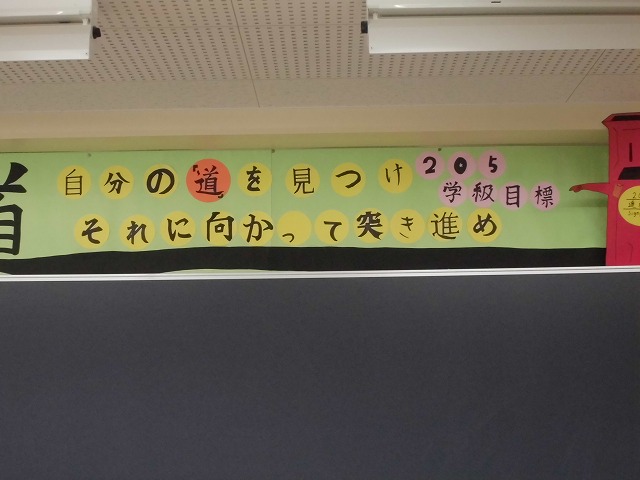 自分の「道」を見つけ
それに向かって突き進め
205
学級目標